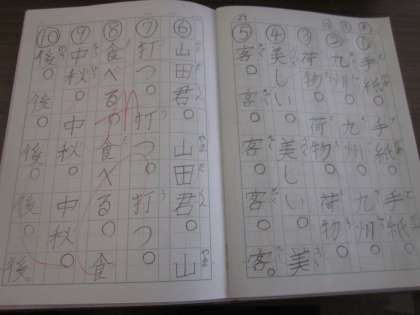 ①手紙○手紙○手紙○
②九州○九州○九州○
③荷物○荷物○荷物○
④美しい○美しい○美
⑤客○客○客○客○客○
⑥山田君○山田君○山
⑦打つ○打つ○打つ○
⑧食べる○食べる○食
⑨中秋○中秋○中秋○
⑩後○後○後○後○後